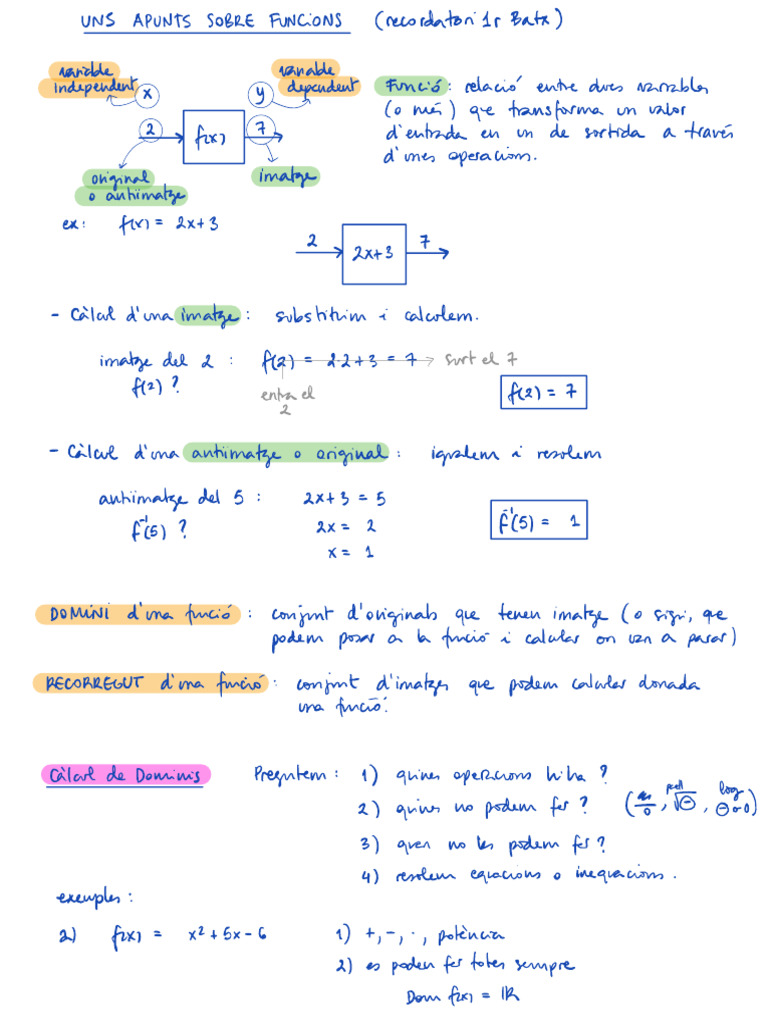 UNS APUNTS SOBRE FUNCIONS (recordatori 1r Batx)
variable independent
x
y
variable dependent
2
f(x)
7
original o antiimatge
imatge
Funció: relació entre dues variables
(o més) que transforma un valor
d'entrada en un de sortida a través
d'unes operacions.
ex: f(x) = 2x+3
2 2x+3 7
- Càlcul d'una imatge: substituim i calculem.
imatge del 2 : f(2) = 2·2+3 = 7 → surt el 7
f(2) ?
entra el 2
f(2) = 7
- Càlcul d'una antiimatge o original: igualem i resolem
antiimatge del 5 : 2x+3 = 5
f⁻¹(5) ? 2x = 2
x = 1
f⁻¹(5) = 1
DOMINI d'una funció: conjunt d'originals que tenen imatge (o sigui, que
podem posar a la funció i calcular on van a parar)
RECORREGUT d'una funció: conjunt d'imatges que podem calcular donada
una funció.
Càlcul de Dominis Preguntem: 1) quines operacions hi ha ?
2) quines no podem fer ? (/0, parell √⊖, log ⊖ o 0)
3) quan no les podem fer ?
4) resolem equacions o inequacions.
exemples:
2) f(x) = x² + 5x - 6 1) +, -, ·, potència
2) es poden fer totes sempre
Dom f(x) = ℝ